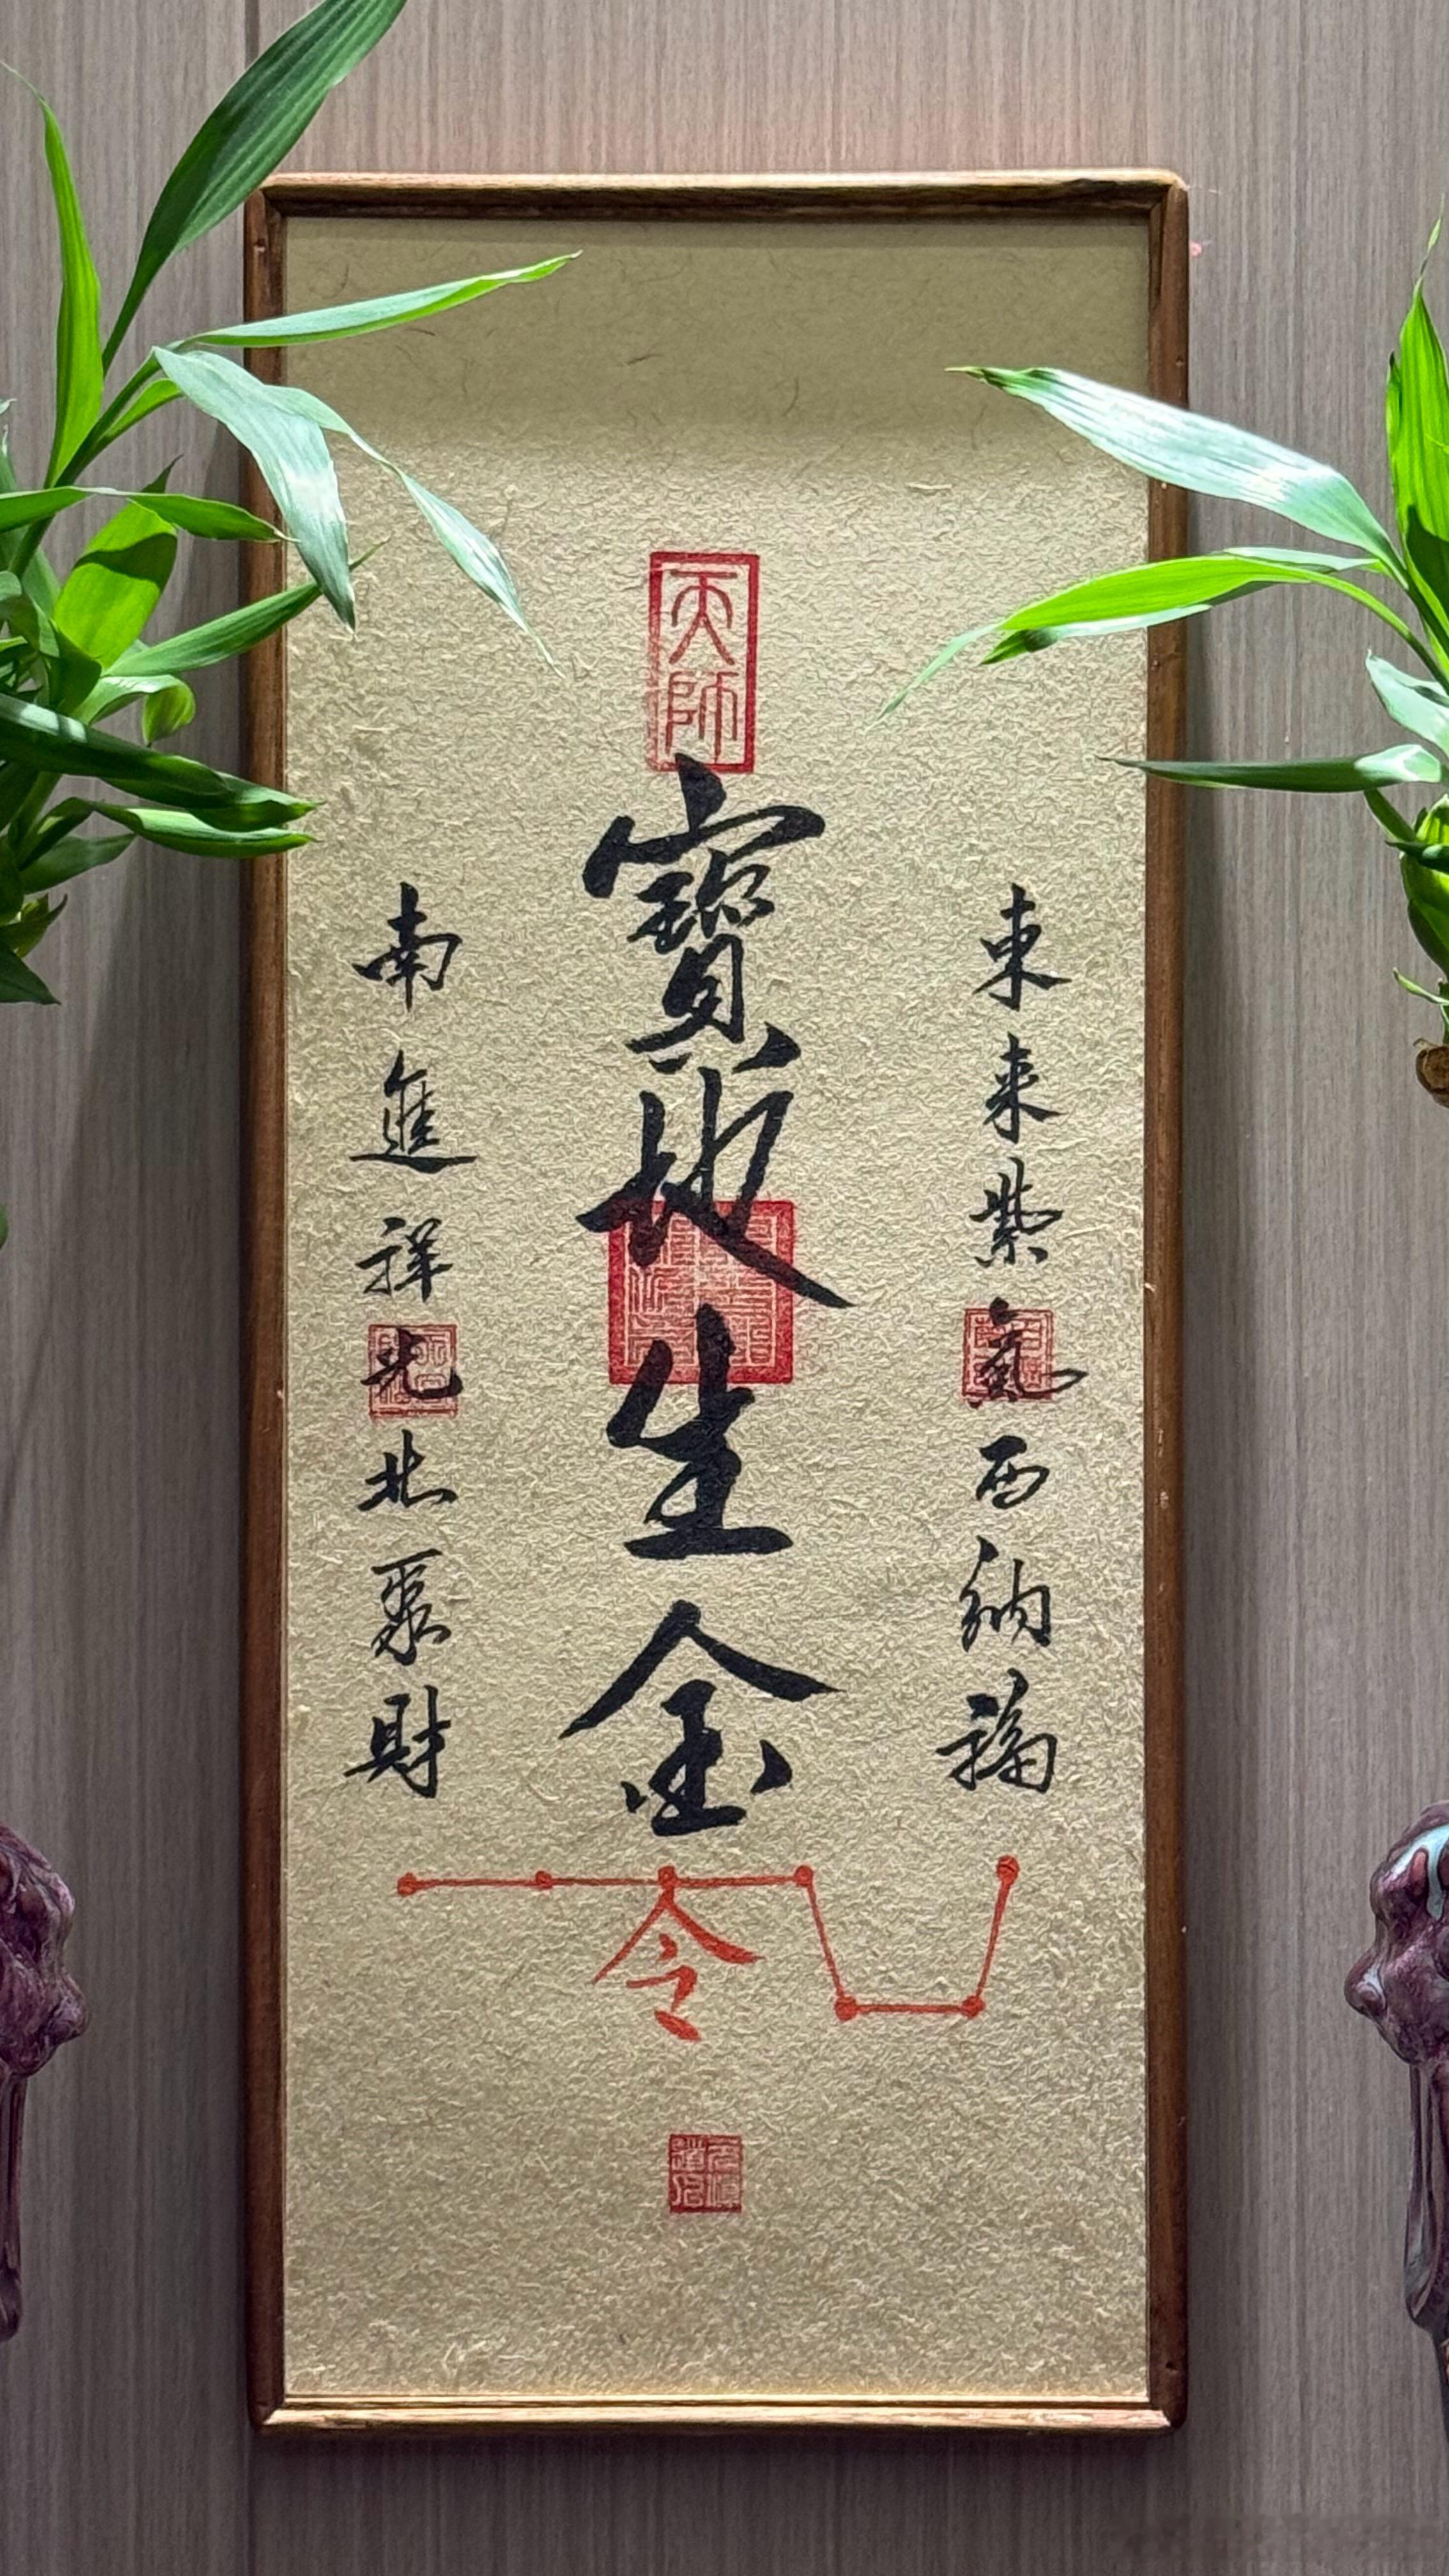 天師
東来紫氣西納福
寶地生金
南進祥光北聚財
令